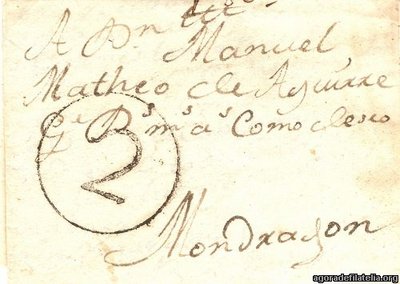 A Dn
Manuel
Matheo de Aguirre
qe Ds ms as como deseo
2
Mondragon
agoradefilatelia.org